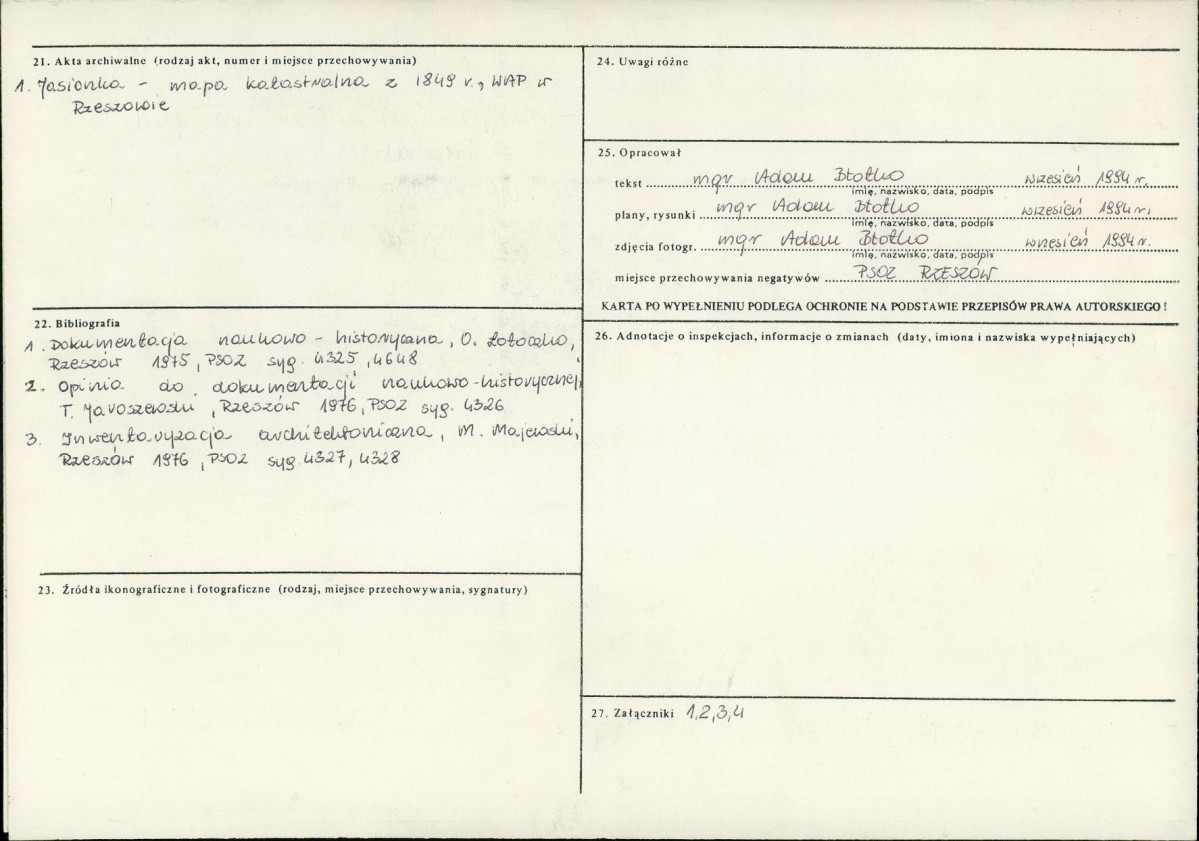 21. Akta archiwalne (rodzaj akt, numer i miejsce przechowywania)
1. Jasionka - mapa katastralna z 1849 r., WAP w
Rzeszowie
22. Bibliografia
1. Dokumentacja naukowo - historyczna, O. Łotoczko,
Rzeszów 1975, PSOZ syg. 4325, 4648
2. Opinia do dokumentacji naukowo-historycznej,
T. Jaroszewski, Rzeszów 1976, PSOZ syg. 4326
3. Inwentaryzacja architektoniczna, M. Majewski,
Rzeszów 1976, PSOZ syg. 4327, 4328
23. Źródła ikonograficzne i fotograficzne (rodzaj, miejsce przechowywania, sygnatury)
24. Uwagi różne
25. Opracował
tekst mgr Adam Błotko wrzesień 1994 r.
imię, nazwisko, data, podpis
plany, rysunki mgr Adam Błotko wrzesień 1994 r.
imię, nazwisko, data, podpis
zdjęcia fotogr. mgr Adam Błotko wrzesień 1994 r.
imię, nazwisko, data, podpis
miejsce przechowywania negatywów PSOZ RZESZÓW
KARTA PO WYPEŁNIENIU PODLEGA OCHRONIE NA PODSTAWIE PRZEPISÓW PRAWA AUTORSKIEGO !
26. Adnotacje o inspekcjach, informacje o zmianach (daty, imiona i nazwiska wypełniających)
27. Załączniki 1,2,3,4